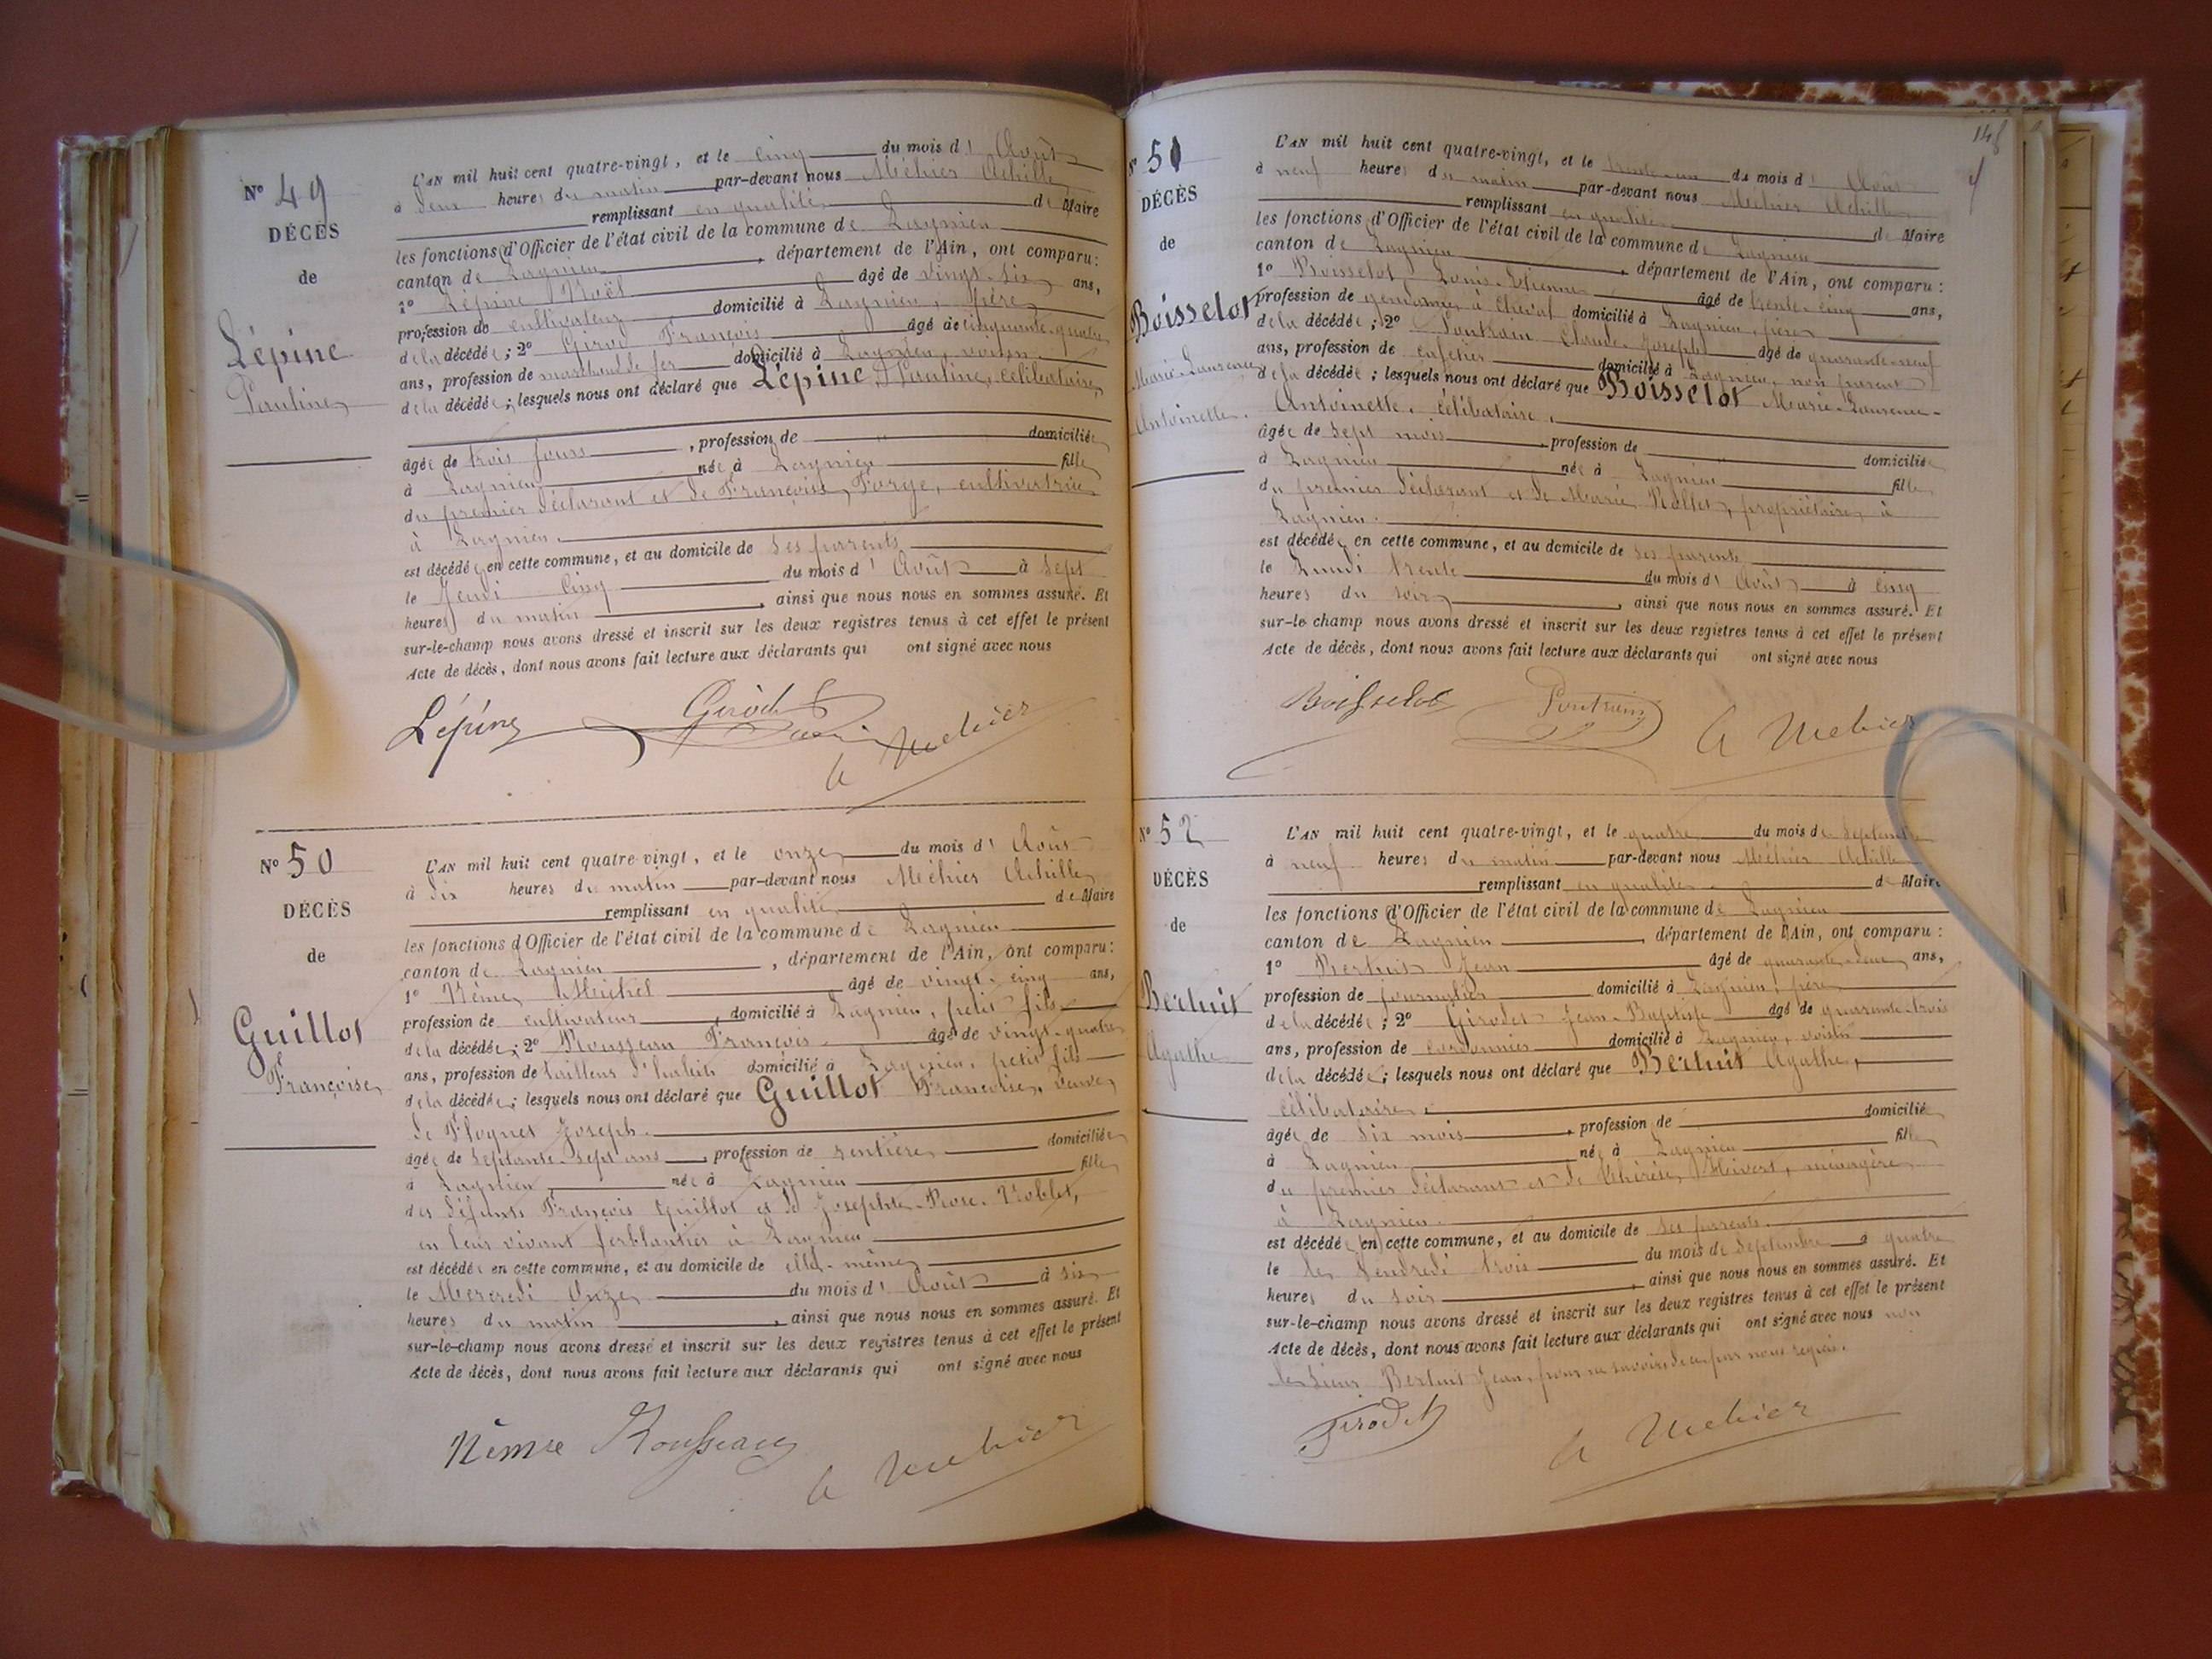 N° 49
DÉCÈS
de
Lépine
Pauline
L'AN mil huit cent quatre-vingt, et le cinq du mois d' Août
à deux heures du matin par-devant nous Méhier Achille
remplissant en qualité de Maire
les fonctions d'Officier de l'état civil de la commune de Lagnieu
canton de Lagnieu, département de l'Ain, ont comparu:
1° Lépine Noël âgé de vingt-six ans,
profession de cultivateur domicilié à Lagnieu, père
de la décédée; 2° Girod François âgé de cinquante-quatre
ans, profession de marchand de fer domicilié à Lagnieu, voisin
de la décédée; lesquels nous ont déclaré que Lépine Pauline, célibataire,
âgée de trois jours, profession de domiciliée
à Lagnieu née à Lagnieu fille
du premier déclarant et de Françoise Forge, cultivatrice
à Lagnieu.
est décédée en cette commune, et au domicile de ses parents
le Jeudi cinq du mois d' Août à sept
heures du matin, ainsi que nous nous en sommes assuré. Et
sur-le-champ nous avons dressé et inscrit sur les deux registres tenus à cet effet le présent
Acte de décès, dont nous avons fait lecture aux déclarants qui ont signé avec nous
Lépine Girod A Mehier
N° 50
DÉCÈS
de
Guillot
Françoise
L'AN mil huit cent quatre-vingt, et le onze du mois d' Août
à dix heures du matin par-devant nous Méhier Achille
remplissant en qualité de Maire
les fonctions d'Officier de l'état civil de la commune de Lagnieu
canton de Lagnieu, département de l'Ain, ont comparu:
1° Nême Michel âgé de vingt-cinq ans,
profession de cultivateur, domicilié à Lagnieu, petit fils
de la décédée; 2° Rousseau François âgé de vingt-quatre
ans, profession de tailleur d'habits domicilié à Lagnieu, petit fils
de la décédée; lesquels nous ont déclaré que Guillot Françoise, veuve
de Joseph.
âgée de septante-sept ans, profession de rentière domiciliée
à Lagnieu, née à Lagnieu fille
des défunts François Guillot et de Josephte-Rose
en leur vivant ferblantier à Lagnieu
est décédée en cette commune, et au domicile de elle-même
le Mercredi Onze du mois d' Août à six
heures du matin, ainsi que nous nous en sommes assuré. Et
sur-le-champ nous avons dressé et inscrit sur les deux registres tenus à cet effet le présent
Acte de décès, dont nous avons fait lecture aux déclarants qui ont signé avec nous
Nême Rousseau A Mehier
148
N° 51
DÉCÈS
de
Boisselot
Marie-Laurence
Antoinette.
L'AN mil huit cent quatre-vingt, et le trente-un du mois d' Août
à neuf heures du matin par-devant nous Méhier Achille
remplissant en qualité de Maire
les fonctions d'Officier de l'état civil de la commune de Lagnieu
canton de Lagnieu, département de l'Ain, ont comparu:
1° Boisselot Louis-Etienne âgé de trente-cinq ans,
profession de gendarme à cheval domicilié à Lagnieu, père
de la décédée; 2° Claude-Joseph âgé de quarante-neuf
ans, profession de cafetier domicilié à Lagnieu, non parent
de la décédée; lesquels nous ont déclaré que Boisselot Marie-Laurence-
Antoinette, célibataire,
âgée de sept mois, profession de domiciliée
à Lagnieu née à Lagnieu fille
du premier déclarant et de Marie Rollet, propriétaire, à
Lagnieu.
est décédée en cette commune, et au domicile de ses parents
le Lundi trente du mois d' Août à cinq
heures du soir, ainsi que nous nous en sommes assuré. Et
sur-le-champ nous avons dressé et inscrit sur les deux registres tenus à cet effet le présent
Acte de décès, dont nous avons fait lecture aux déclarants qui ont signé avec nous
Boisselot A Mehier
N° 52
DÉCÈS
de
Berluit
Agathe
L'AN mil huit cent quatre-vingt, et le quatre du mois de Septembre
à neuf heures du matin par-devant nous Méhier Achille
remplissant en qualité de Maire
les fonctions d'Officier de l'état civil de la commune de Lagnieu
canton de Lagnieu, département de l'Ain, ont comparu:
1° Berluit Jean âgé de quarante-deux ans,
profession de journalier domicilié à Lagnieu, père
de la décédée; 2° Girodet Jean-Baptiste âgé de quarante-trois
ans, profession de cordonnier domicilié à Lagnieu, voisin
de la décédée; lesquels nous ont déclaré que Berluit Agathe,
célibataire.
âgée de six mois, profession de domiciliée
à Lagnieu née à Lagnieu fille
du premier déclarant et de Thérèse ménagère,
à Lagnieu.
est décédée en cette commune, et au domicile de ses parents.
le le Vendredi trois du mois de Septembre à quatre
heures du soir, ainsi que nous nous en sommes assuré. Et
sur-le-champ nous avons dressé et inscrit sur les deux registres tenus à cet effet le présent
Acte de décès, dont nous avons fait lecture aux déclarants qui ont signé avec nous non
le sieur Berluit Jean, pour ne savoir de ce par nous requis.
Girodet A Mehier